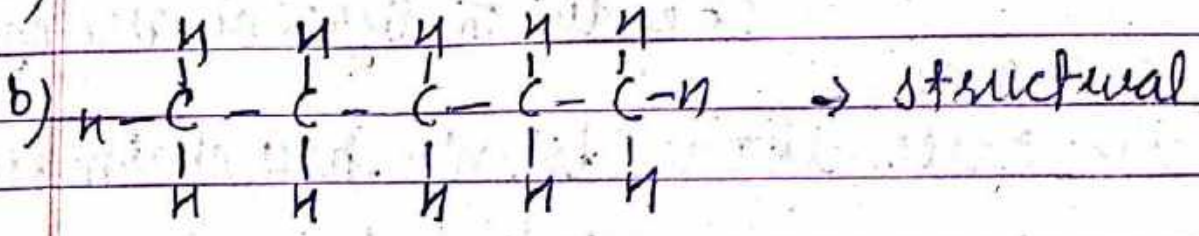 H H H H H
b) H-C-C-C-C-C-H → structural
H H H H H